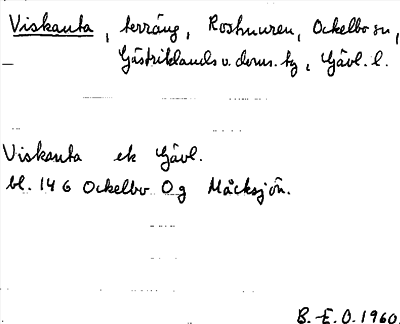 Viskanta, terräng, Roshnuren, Ockelbo sn,
Gästriklands v. doms. tg, Gävl. l.
Viskanta ek Gävl.
bl. 14 6 Ockelbo Og Måcksjön.
B. E. O. 1960.